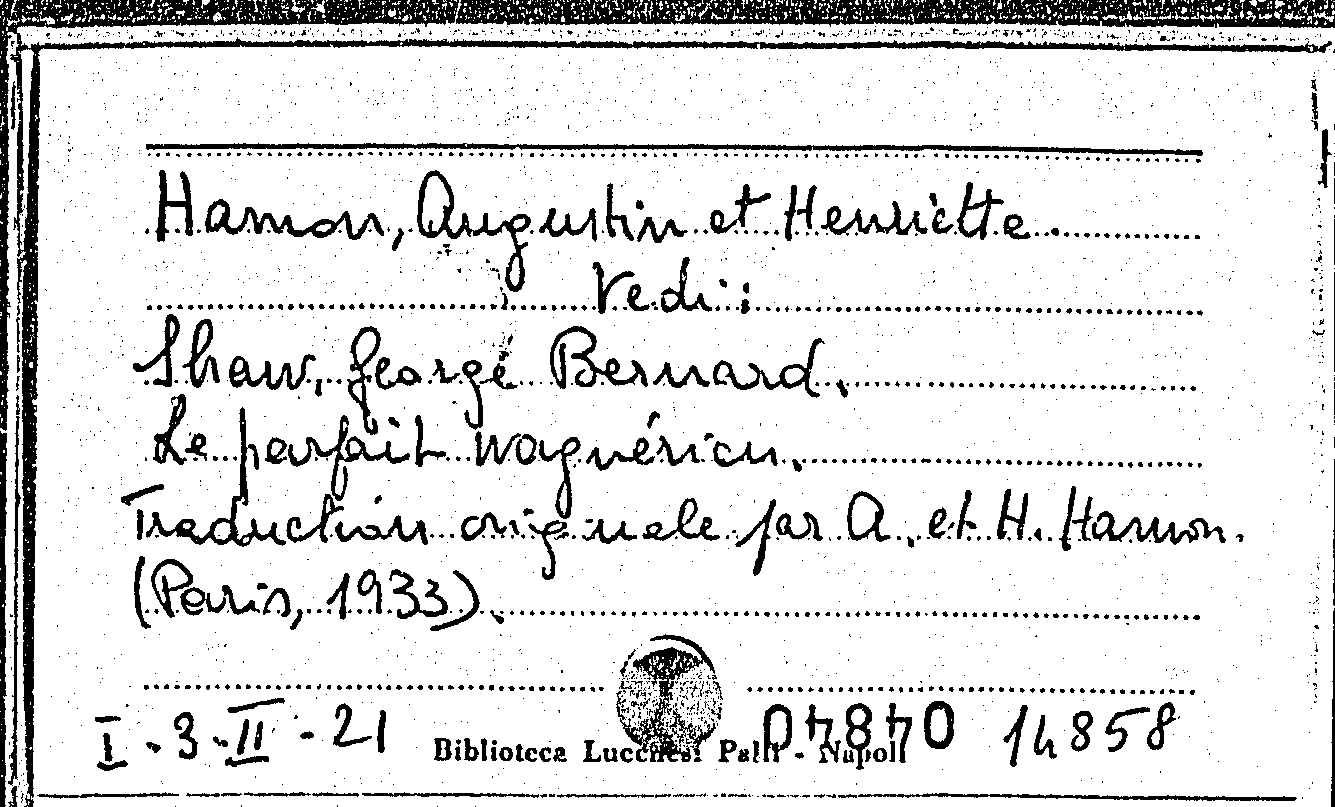 Hamon, Augustin et Henriette.
Vedi:
Shaw, George Bernard.
Le parfait wagnérien.
Traduction originale par A. et H. Hamon.
(Paris, 1933).
I-3-II-21
14858
Biblioteca Lucchesi Palli - Napoli